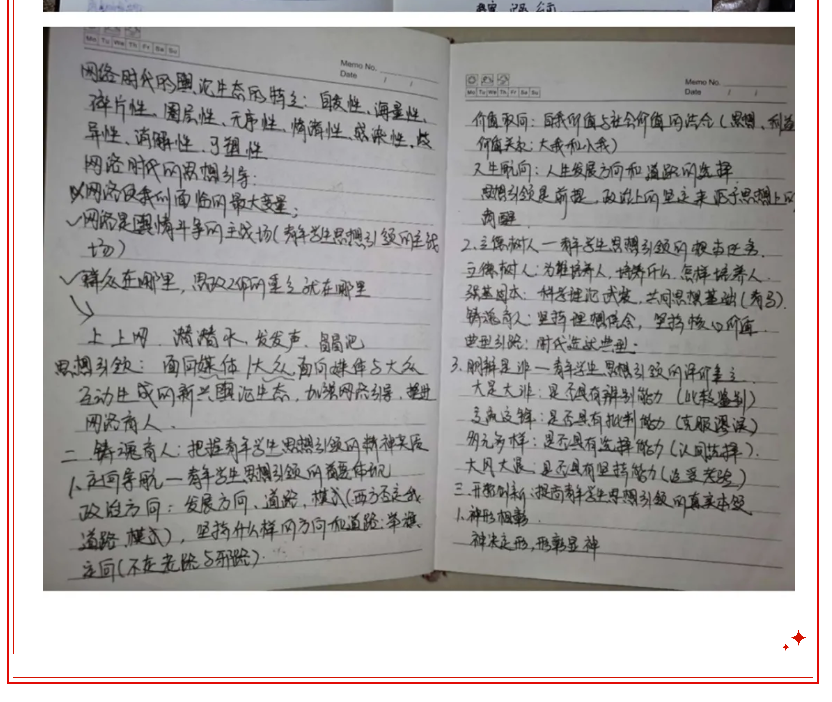 Mo Tu We Th Fr Sa Su
Memo No.
Date / /
网络时代的舆论生态的特点：自发性、海量性、
碎片性、圈层性、无序性、情绪性、感染性、变
异性、消解性、可塑性
网络时代的思想引导：
网络使我们面临的最大变量；
✓网络是舆情斗争的主战场（青年学生思想引领的主战
场）
✓群众在哪里，思政工作的重点就在哪里
上上网、潜潜水、发发声、冒冒泡
思想引领：面向媒体、大众，面向媒体与大众
互动生成的新兴舆论生态，加强网络引导，推进
网络育人．
二 铸魂育人：把握青年学生思想引领的精神实质
1、定向导航—青年学生思想引领的
政治方向：发展方向、道路、模式（西方否定我
道路、模式），坚持什么样的方向和道路：举旗
定向（不走老路与邪路）
Mo Tu We Th Fr Sa Su
Memo No.
Date / /
价值取向：自我价值与社会价值的结合（思想、利益
价值关系：大我和小我）
人生航向：人生发展方向和道路的选择
思想引领是前提，政治上的坚定来源于思想上的
清醒
2.立德树人—青年学生思想引领的根本任务．
立德树人：为谁培养人，培养什么、怎样培养人
强基固本：科学理论武装，共同思想基础（青马）．
铸魂育人：坚持理想信念，坚持核心价值
典型引路：时代选试典型．
3.明辨是非—青年学生思想引领的评价重点
大是大非：是否具有辨别能力（比较鉴别）
交流交锋：是否具有批判能力（克服谬误）
多元多样：是否具有选择能力（认同选择）．
大风大浪：是否具有坚持能力（追受考验）
三.开拓创新：提高青年学生思想引领的真实本领
1.神形相彰．
神决定形，形彰显神